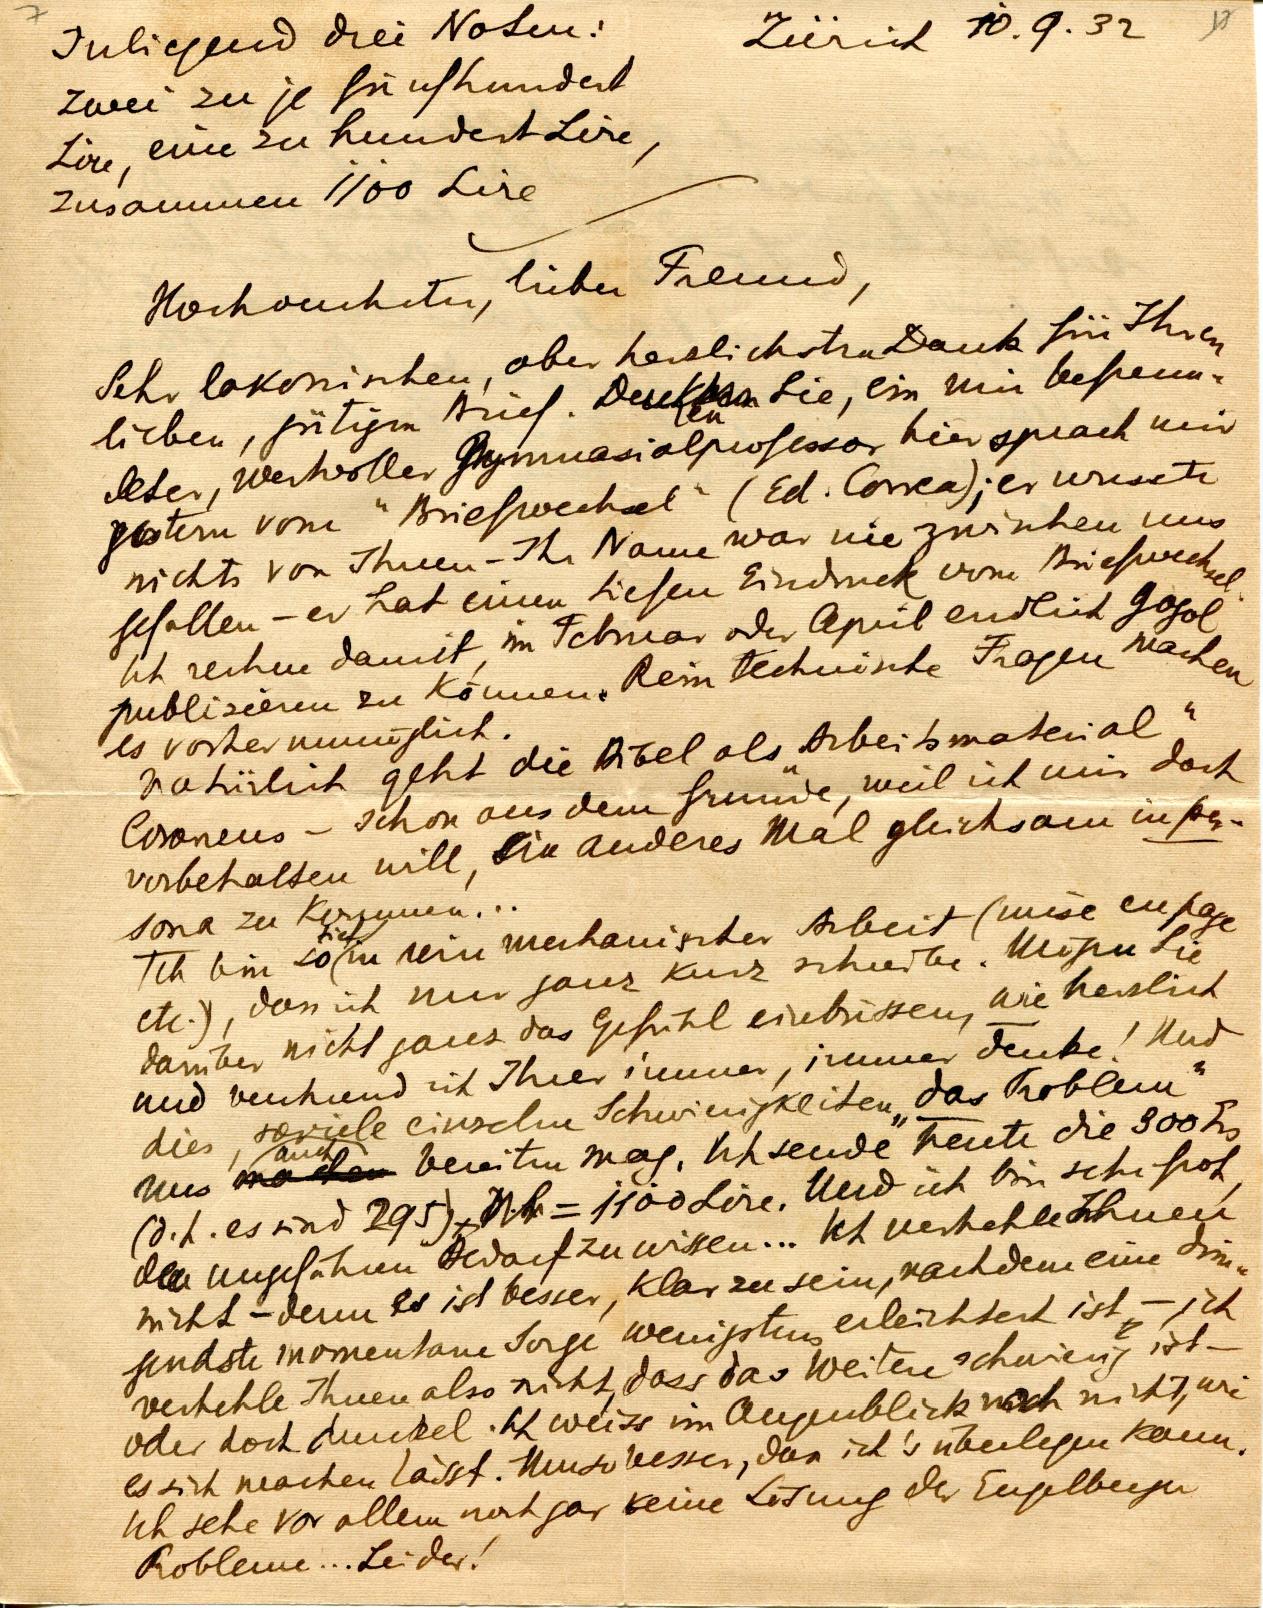 Inliegend drei Noten:
zwei zu je fünfhundert
Lire, eine zu hundert Lire,
zusammen 1100 Lire
Zürich 10.9.32
Hochverehrter, lieber Freund,
Sehr lakonischen, aber herzlichsten Dank für Ihren
lieben, gütigen Brief. Denken Sie, ein mir befreun-
deter, wertvoller Gymnasialprofessor hier sprach mir
gestern vom "Briefwechsel" (Ed. Correa); er wusste
nichts von Ihnen – Ihr Name war nie zwischen uns
gefallen – er hat einen tiefen Eindruck vom Briefwechsel.
Ich rechne damit, im Februar oder April endlich Gogol
publizieren zu können. Rein technische Fragen machen
es vorher unmöglich.
Natürlich geht die Bibel als "Arbeitsmaterial"
Coronens – schon aus dem Grunde, weil ich mir doch
vorbehalten will, ein anderes Mal gleichsam in per-
sona zu kommen...
Ich bin so tief in rein mechanischer Arbeit (mise en page
etc.), dass ich nur ganz kurz schreibe. Mögen Sie
darüber nicht ganz das Gefühl einbüssen, wie herzlich
und verehrend ich Ihrer immer, immer denke! Und
dies, soviele einzelne Schwierigkeiten "das Problem"
uns auch bereiten mag. Ich sende heute die 300 Frs
(d.h. es sind 295) = 1100 Lire. Und ich bin sehr froh,
den ungefähren Bedarf zu wissen... Ich verhehle Ihnen
nicht – denn es ist besser, klar zu sein, nachdem eine drin-
gendste momentane Sorge wenigstens erleichtert ist – ich
verhehle Ihnen also nicht, dass das Weitere schwierig ist –
oder doch dunkel. Ich weiss im Augenblick noch nicht, wie
es sich machen lässt. Umso besser, dass ich's überlegen kann.
Ich sehe vor allem noch gar keine Lösung der Engelberger
Probleme... Leider!